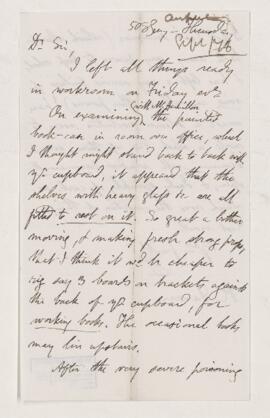 Dr Sir,
I left all things ready
in workroom on Friday
On examining the painted
(with Mr. Hamilton
book-case in room over office, which
I thought might stand back to back with
yr cupboard, it appeared that the
shelves with heavy glass &c are all
fitted to rest on it. So great a bother
moving, & making fresh strong props,
that I think it wd be cheaper to
rig say 3 boards on brackets against
the back of yr cupboard, for
working books. The occasional books
may live upstairs.
After the very severe poisoning